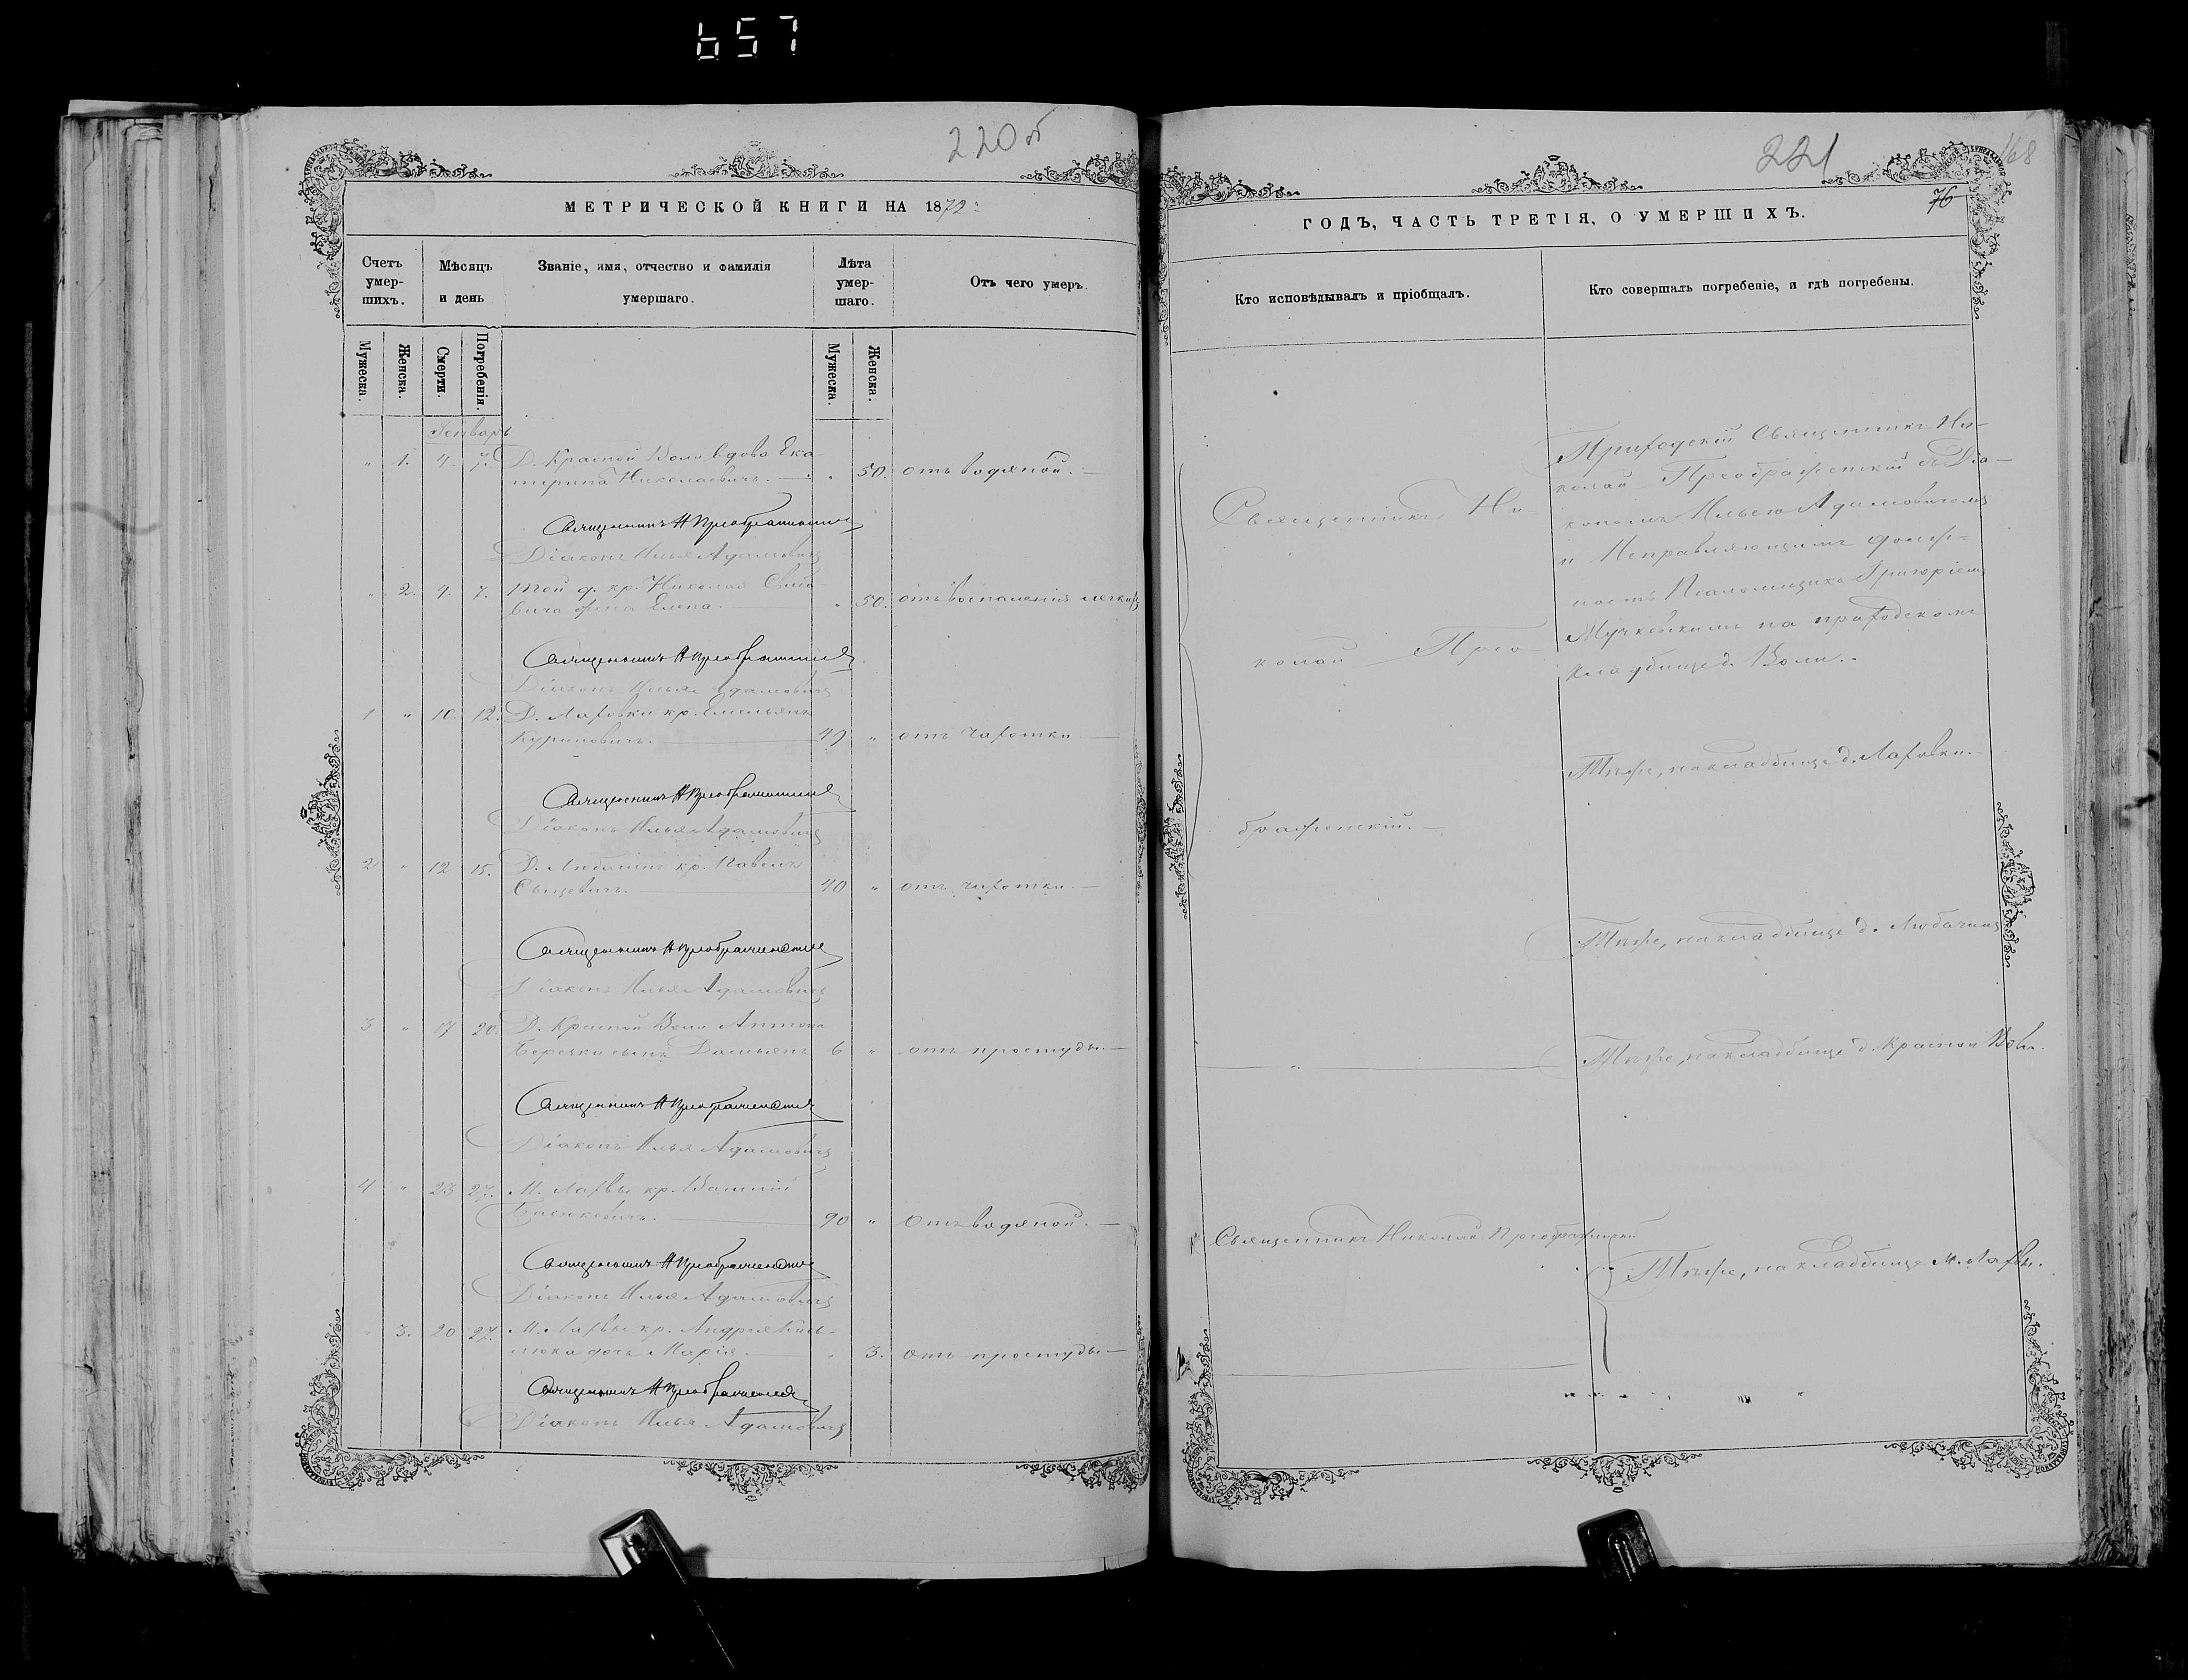 657
220об
МЕТРИЧЕСКОЙ КНИГИ НА 1872
Счетъ умер-шихъ.
Мѣсяцъ и день
Званіе, имя, отчество и фамилія умершаго.
Лѣта умер-шаго.
Отъ чего умеръ.
Мужеска.
Женска.
Смерти.
Погребенія.
Мужеска.
Женска.
Январь
" 1. 4. 7. Д. Красной Воли вдова Ека-
терина Николаевичъ. " 50. отъ водяной.
Священникъ Н Преображенскій
Діаконъ Илья Адамовичъ
" 2. 4. 7. Той д. кр. Николая
жена Елена. " 50. отъ воспаленія легкихъ
Священникъ Н Преображенскій
Діаконъ Илья Адамовичъ
1 " 10. 12. Д. Лаховки кр. Емельянъ
Куриловичъ. 49 " отъ чахотки
Священникъ Н Преображенскій
Діаконъ Илья Адамовичъ
2 " 12 15. Д. Любачинъ кр. Павелъ
40 " отъ чахотки.
Священникъ Н Преображенскій
Діаконъ Илья Адамовичъ
3 " 17 20 Д. Красной Воли Антона
сынъ Демьянъ 6 " отъ простуды.
Священникъ Н Преображенскій
Діаконъ Илья Адамовичъ
4 " 23 27. М. Лахвы кр. Василій
90 " отъ водяной.
Священникъ Н Преображенскій
Діаконъ Илья Адамовичъ
" 3. 20 27. М. Лахвы кр. Андрея
дочь Марія. " 3. отъ простуды
Священникъ Н Преображенскій
Діаконъ Илья Адамовичъ
221
168
76
ГОДЪ, ЧАСТЬ ТРЕТІЯ, О УМЕРШИХЪ.
Кто исповѣдывалъ и пріобщалъ.
Кто совершалъ погребеніе, и гдѣ погребены.
Священникъ Ни-
колай Прео-
браженскій.
Приходскій Священникъ Ни-
колай Преображенскій съ Діа-
кономъ Ильею Адамовичемъ
и Исправляющимъ долж-
ность Псаломщика Григоріемъ
на приходскомъ
кладбищѣ д. Воли.
Тѣже, на кладбищѣ д. Лаховки.
Тѣже, на кладбищѣ д. Любачинъ
" Тѣже, на кладбищѣ д. Красной Воли.
Священникъ Николай Преображенскій
Тѣже, на кладбищѣ М. Лахвы.